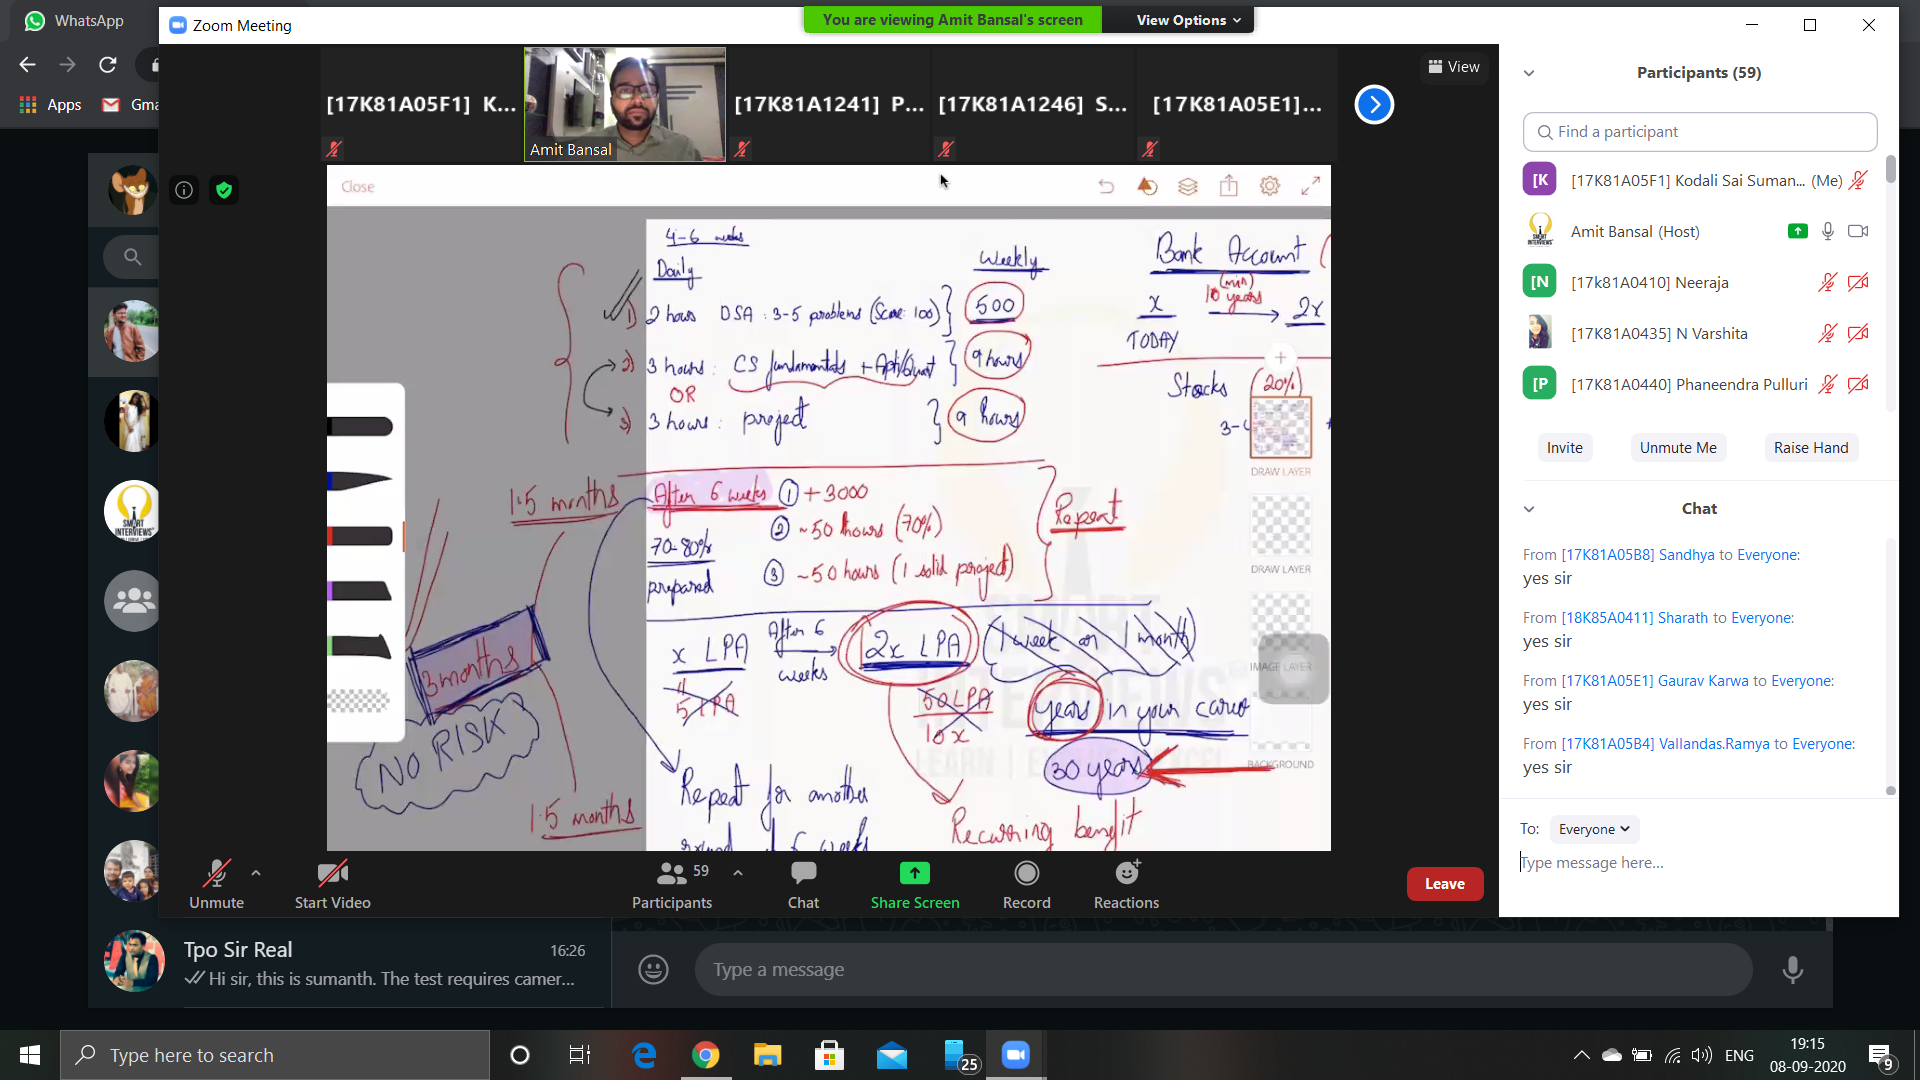 WhatsApp
Zoom Meeting
You are viewing Amit Bansal's screen
View Options
Apps
Gma
[17K81A05F1] K...
Amit Bansal
[17K81A1241] P...
[17K81A1246] S...
[17K81A05E1]...
View
Close
4-6 weeks
Daily
Weekly
1) 2 hours DSA : 3-5 problems (Score: 100) } 500
2) 3 hours : CS fundamentals + Apti/Quant } 9 hours
OR
3) 3 hours : project } 9 hours
Bank Account (
x
(min)
10 years
2x
TODAY
Stocks (20%)
3-
DRAW LAYER
DRAW LAYER
IMAGE LAYER
BACKGROUND
1.5 months
After 6 weeks
① +3000
② ~50 hours (70%)
③ ~50 hours (1 solid project)
70-80%
prepared
Repeat
3 months
NO RISK
1.5 months
x LPA
After 6
weeks
2x LPA
(1 week or 1 month)
5 LPA
50 LPA
10x
years in your career
30 years
Repeat for another
round of 6 weeks
Recurring benefit
INTERVIEWS
LEARN | EXCEL
Participants (59)
Find a participant
[K [17K81A05F1] Kodali Sai Suman... (Me)
Amit Bansal (Host)
[N [17k81A0410] Neeraja
[17K81A0435] N Varshita
[P [17K81A0440] Phaneendra Pulluri
Invite
Unmute Me
Raise Hand
Chat
From [17K81A05B8] Sandhya to Everyone:
yes sir
From [18K85A0411] Sharath to Everyone:
yes sir
From [17K81A05E1] Gaurav Karwa to Everyone:
yes sir
From [17K81A05B4] Vallandas.Ramya to Everyone:
yes sir
To: Everyone
Type message here...
Unmute
Start Video
59
Participants
Chat
Share Screen
Record
Reactions
Leave
SMART
INTERVIEWS
Tpo Sir Real
16:26
Hi sir, this is sumanth. The test requires camer...
Type a message
Type here to search
25
ENG
19:15
08-09-2020
9